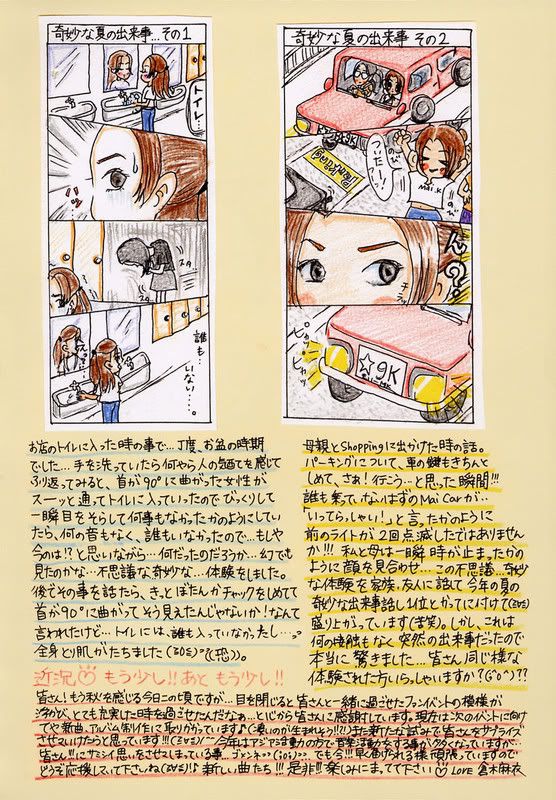 奇妙な夏の出来事…その1
トイレ…
ハッ
スタ
スタ
ん…?
誰も…
いない…。
奇妙な夏の出来事 その2
PARKING
ついたー!
のび
のび
Mai.K
ん?
ピカッ
ピカッ
☆9K
お店のトイレに入った時の事で…丁度、お盆の時期
でした…手を洗っていたら何やら人の気配を感じて
ふり返ってみると、首が90°に曲がった女性が
スーッと通ってトイレに入っていったのでびっくりして
一瞬目をそらして何事もなかったかのようにしてい
たら、何の音もなく、誰もいなかったので…もしや
今のは!?と思いながら…何だったのだろうか…幻でも
見たのかな…不思議な奇妙な…体験をしました。
後でその事を話したら、きっとぼたんかチャックをしめてて
首が90°に曲がってそう見えたんじゃないか!なんて
言われたけど…トイレには、誰も入っていなかったし…。
全身とり肌がたちました
母親とShoppingに出かけた時の話。
パーキングについて、車の鍵もきちんと
しめて、さぁ!行こう…と思った瞬間!!!
誰も乗っていないはずのMai Carが…
「いってらっしゃい!」と言ったかのように
前のライトが2回点滅したではありません
か!!! 私と母は一瞬時が止まったかの
ように顔を見合せ…この不思議…奇妙
な体験を家族、友人に話して今年の夏の
奇妙な出来事話し1位とかってに付けて
盛り上がっています(苦笑)。しかし、これは
何の接触もなく突然の出来事だったので
本当に驚きました…皆さん同じ様な
体験された方いらっしゃいますか??
近況 もう少し!!あともう少し!!
皆さん!もう秋を感じる今日この頃ですが…目を閉じると皆さんと一緒に過ごせたファンイベントの模様が
浮かび、とても充実した時を過ごせたんだなぁ…と心から皆さんに感謝しています。現在は次のイベントに向け
てや新曲、アルバム制作に取りかかっています♪(濃いのが生まれそう!?)また新たな試みで皆さんをサプライズ
させていけたらと思っています!!! 今年はアジアや各方面の方で音楽活動をする事が多くなっていますが…
皆さん!!!サミシイ思いをさせてしまっている事…ゴメンネ でも今!!!早く届けられる様頑張っていますので
どうぞ応援してて下さいね♪新しい曲たち!!!是非!!!楽しみにまってて下さい♡ LOVE 倉木麻衣